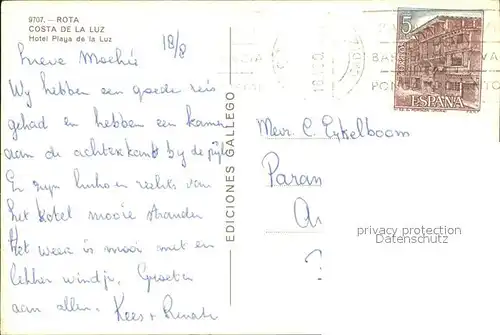 9707. — ROTA
COSTA DE LA LUZ
Hotel Playa de la Luz
18/8
Lieve Moehië
Wij hebben een goede reis
gehad en hebben een kamer
aan de achterkant bij de
Er zijn links en rechts van
het hotel mooie stranden
Het weer is mooi met een
lekker windje. Groeten
aan allen. Kees + Renate
EDICIONES GALLEGO
5
CORREOS
ESPAÑA
Mevr. C. Eykelboom
Paran
privacy protection
Datenschutz